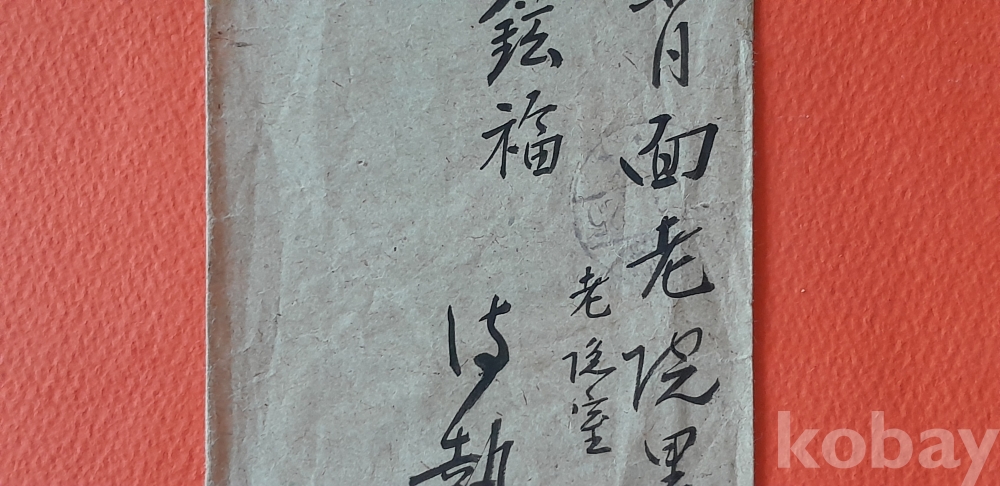 月面老院里
老隐室
鉉福
侍
kobay